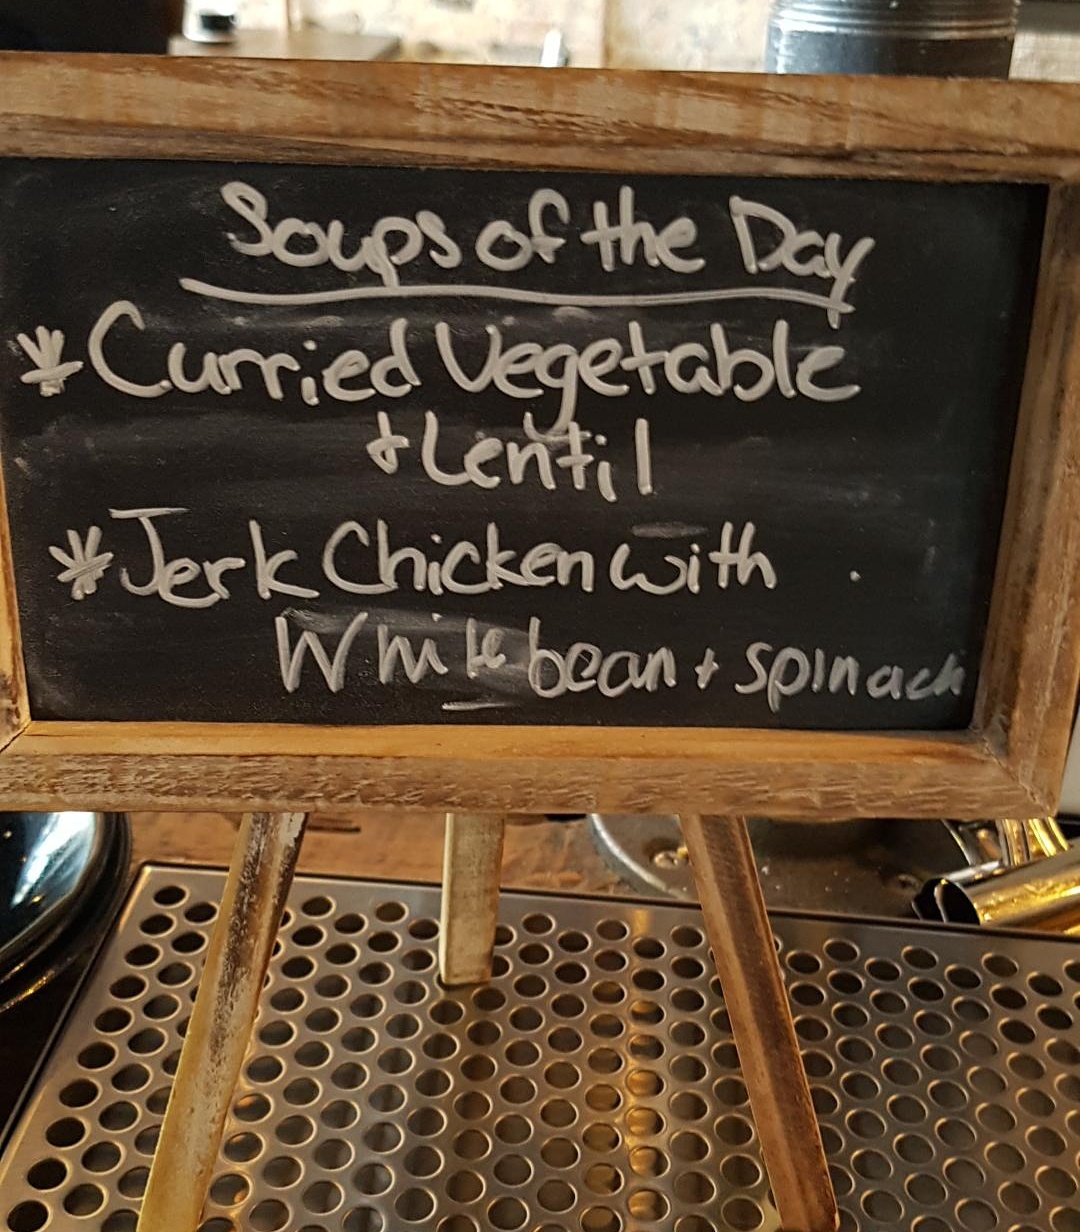 Soups of the Day
* Curried Vegetable
+ Lentil
* Jerk Chicken with
White bean + spinach